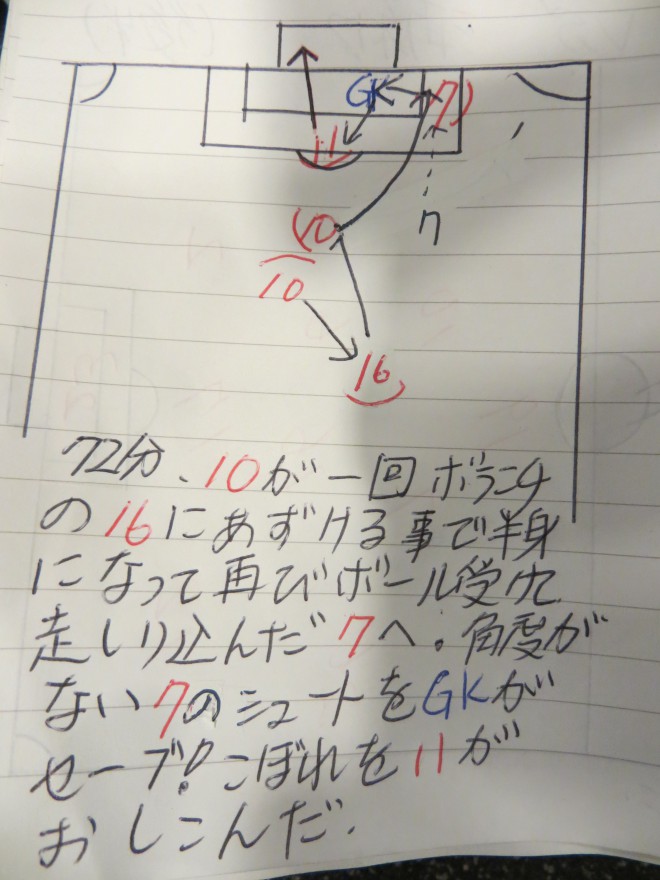 GK
7
11
10
7
10
16
72分、10が一回ボランチ
の16にあずける事で半身
になって再びボール受け
走しり込んだ7へ。角度が
ない7のシュートをGKが
セーブ!こぼれを11が
おしこんだ.